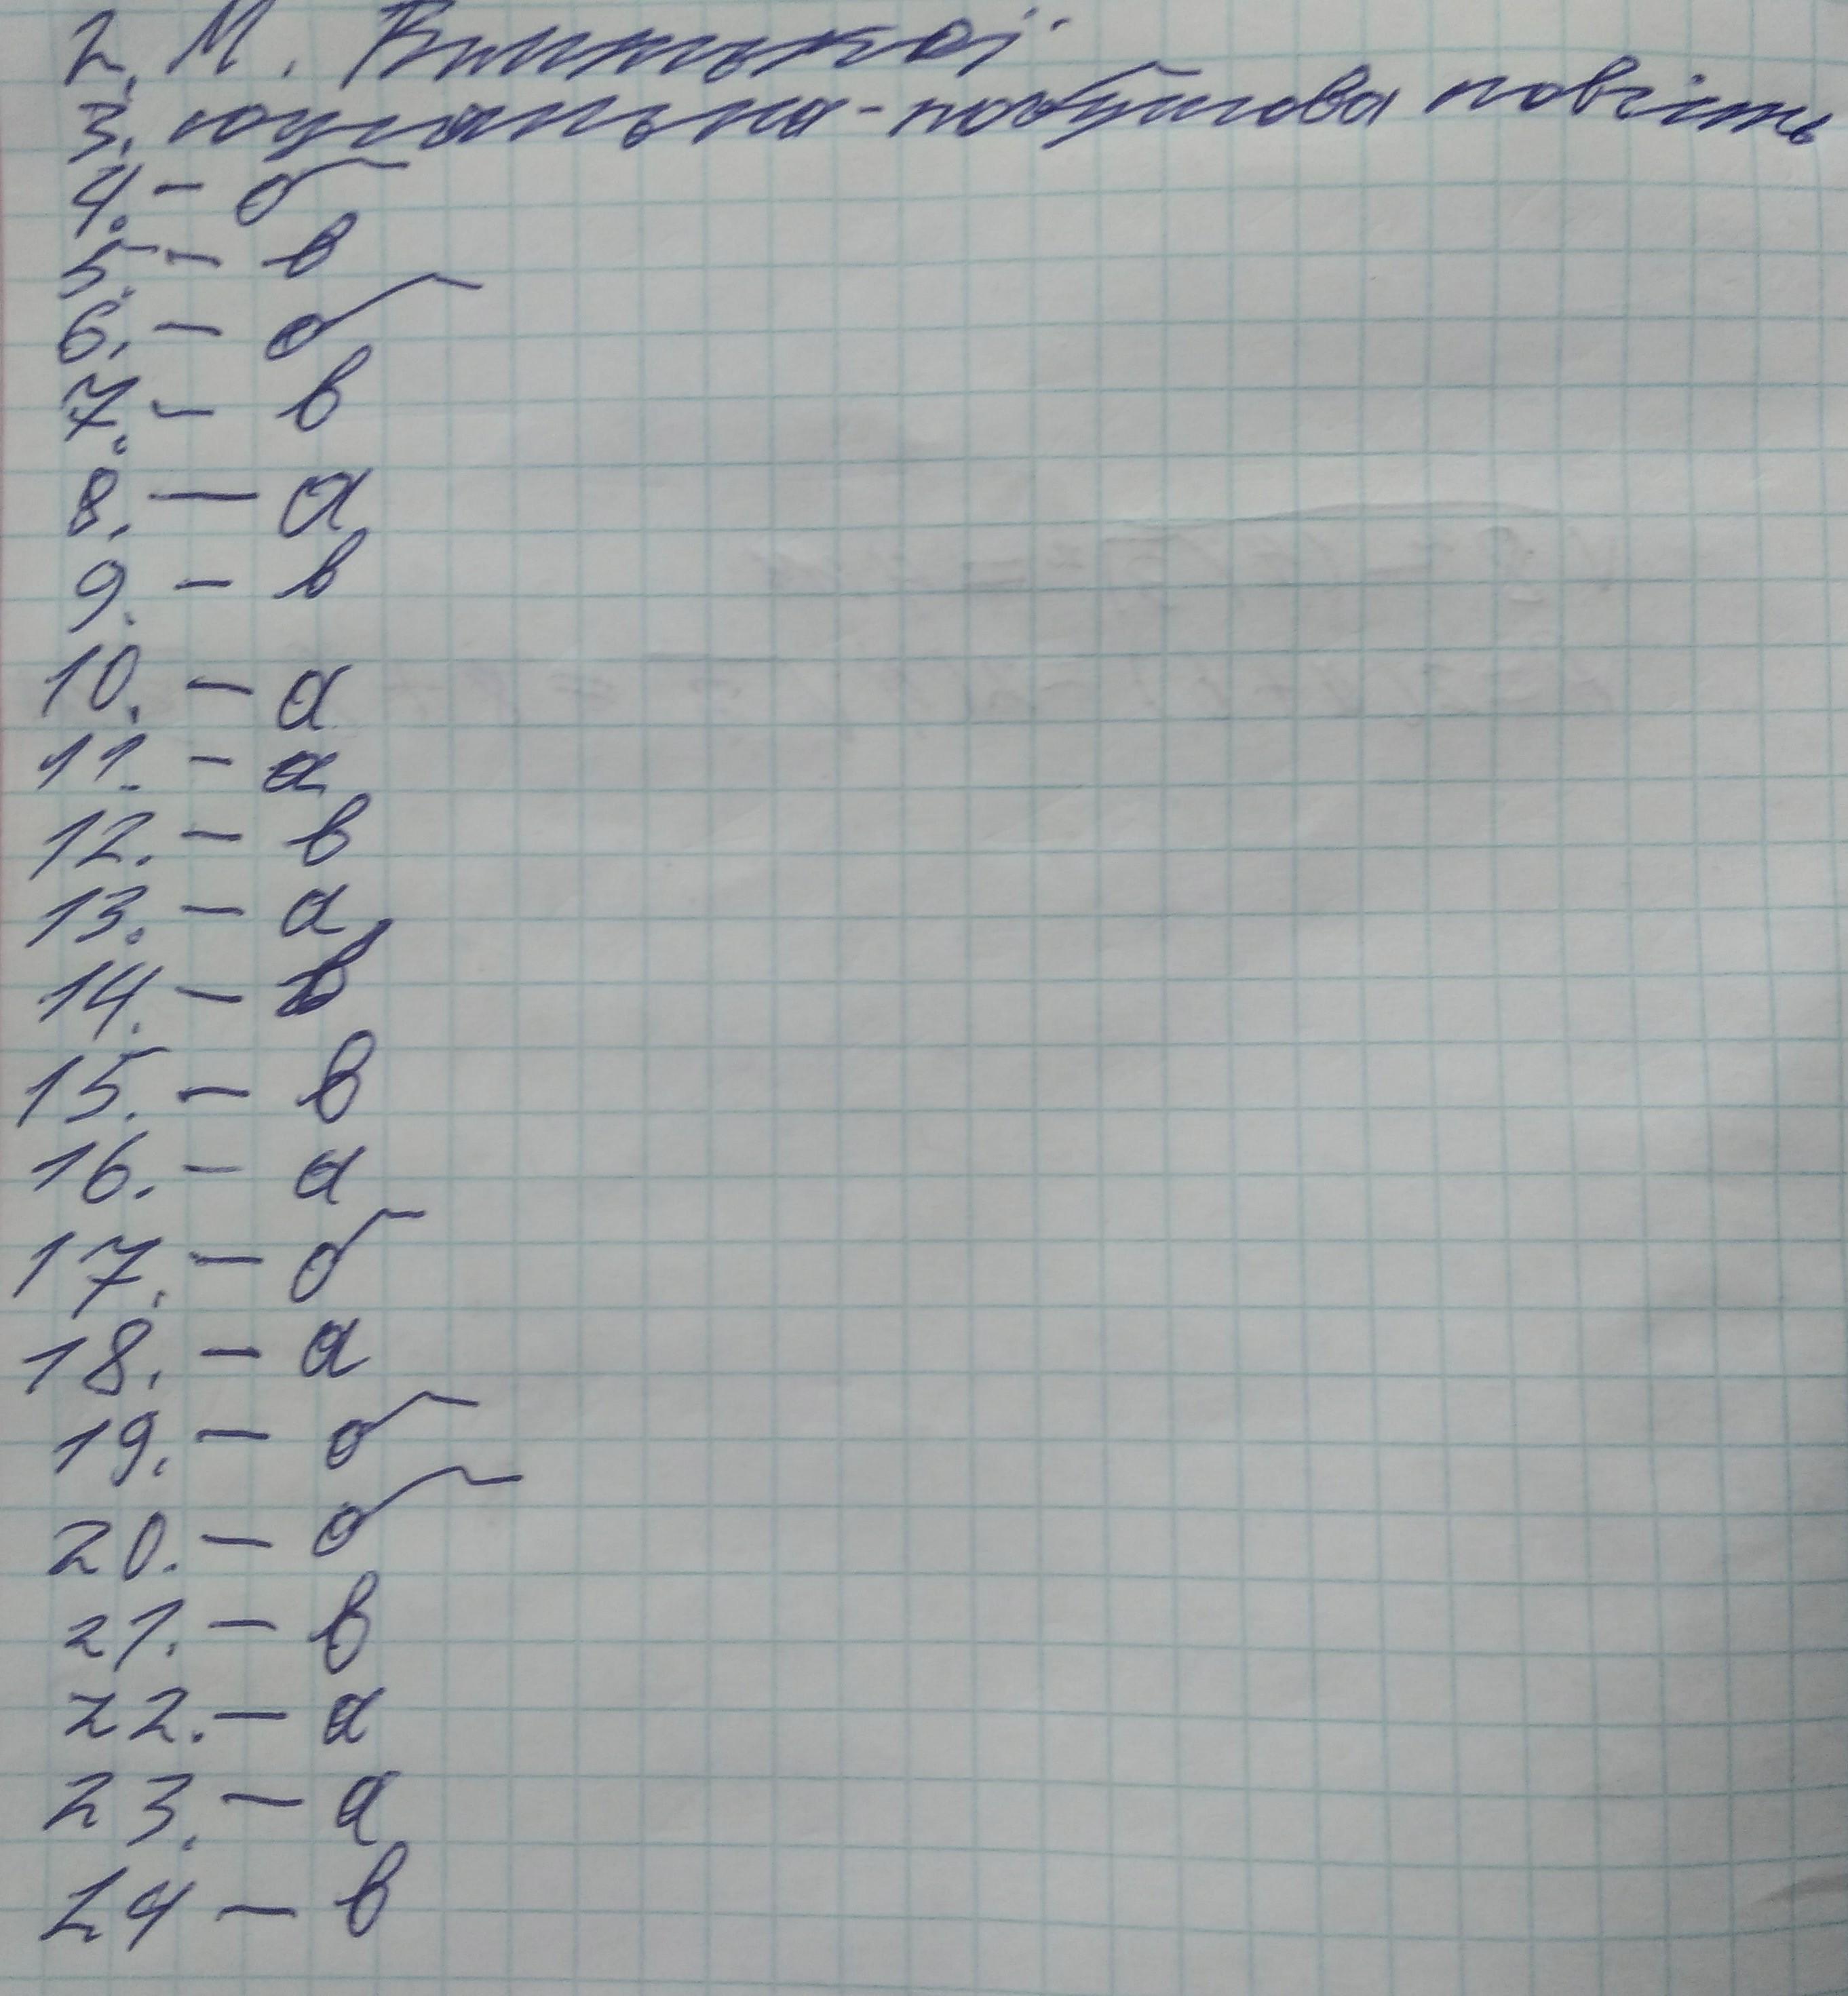 2. М. Вилинської
3. соціально-побутова повість
4. - б
5. - в
6. - б
7. - в
8. - а
9. - в
10. - а
11. - а
12. - в
13. - а
14. - в
15. - в
16. - а
17. - б
18. - а
19. - б
20. - б
21. - в
22. - а
23. - а
24 - в